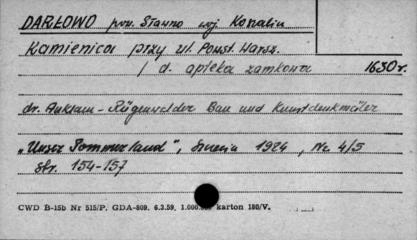 DARŁOWO pow. Sławno woj Koszalin
Kamienica przy ul. Powst. Warsz.
/ d. apteka zamkowa 1630r.
dr. - Rügenwalder Bau und Kunstdenkmäler
„Unser Pommerland", 1924, Nr. 4/5
str. 154-157
CWD B-15b Nr 515/P. GDA-809. 6.3.59. karton 180/V.